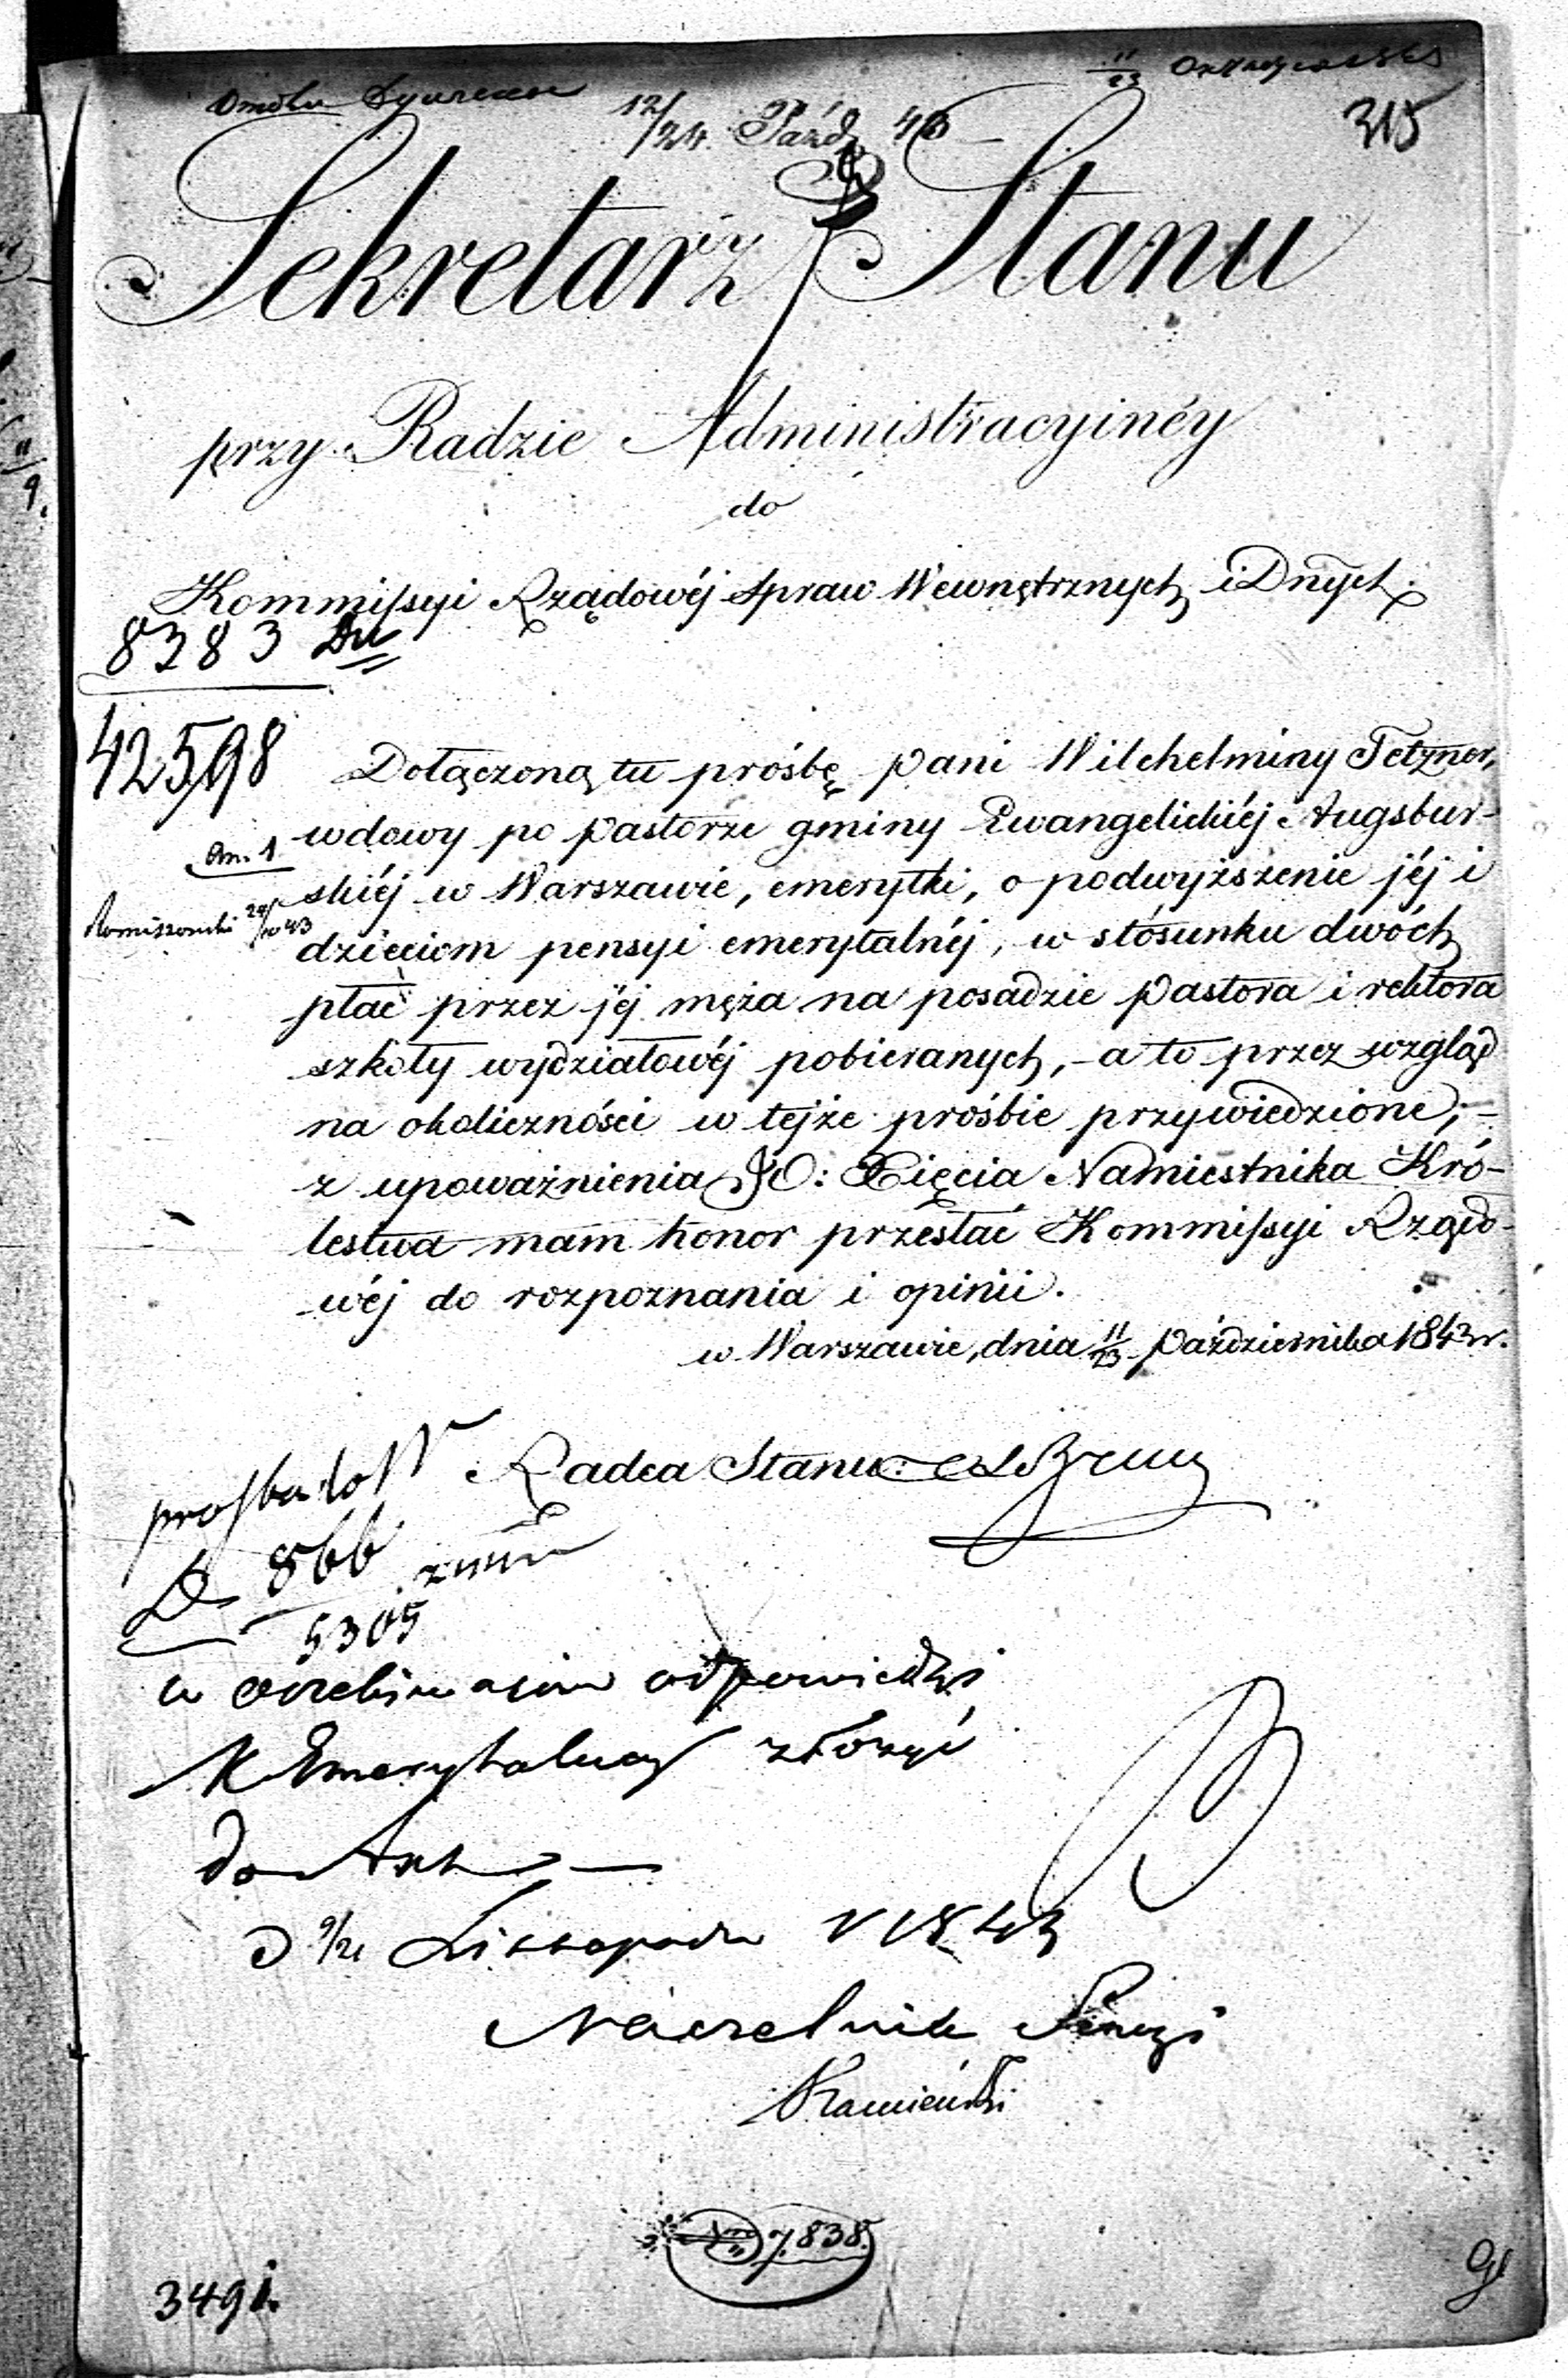 12/24 Paźdz 43
315
Sekretarz Stanu
przy Radzie Administracyinéy
do
Kommissyi Rządowéj Spraw Wewnętrznych i Dnych.
8383
42598
Dołączoną tu prośbę Pani Wilchelminy Tetzner,
wdowy po Pastorze gminy Ewangelickiéj Augsbur-
An. 1
skiéj w Warszawie, emerytki, o podwyższenie jéj i
dzieciom pensyi emerytalnéj, w stósunku dwóch
płac przez jéj męża na posadzie Pastora i rektora
szkoły wydziałowéj pobieranych, - a to przez wzgląd
na okoliczności w tejże prośbie przywiedzione; -
z upoważnienia JO: Xięcia Namiestnika Kró-
lestwa mam honor przesłać Kommissyi Rządo-
wéj do rozpoznania i opinii.
w Warszawie, dnia 11/23 Października 1843 r.
Radca Stanu:
prosba do N
866
5305
w oczekiwaniu odpowiedzi
K Emerytalney złożyć
do Akt
D 9/21 Listopada 1843
Naczelnik Sekcyi
Kamieński
7838.
3491.